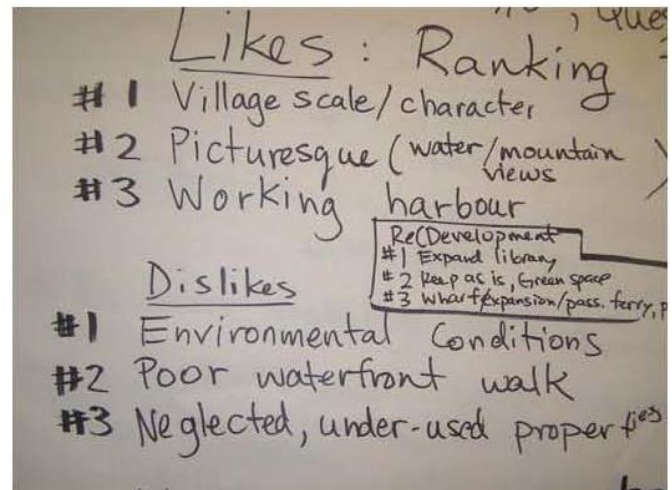 Likes: Ranking
#1 Village scale/character
#2 Picturesque (water/mountain
views
#3 Working harbour
Re(Development
#1 Expand library
#2 Keep as is, Green space
#3 Wharf/expansion/pass. ferry, p
Dislikes
#1 Environmental Conditions
#2 Poor waterfront walk
#3 Neglected, under-used properties